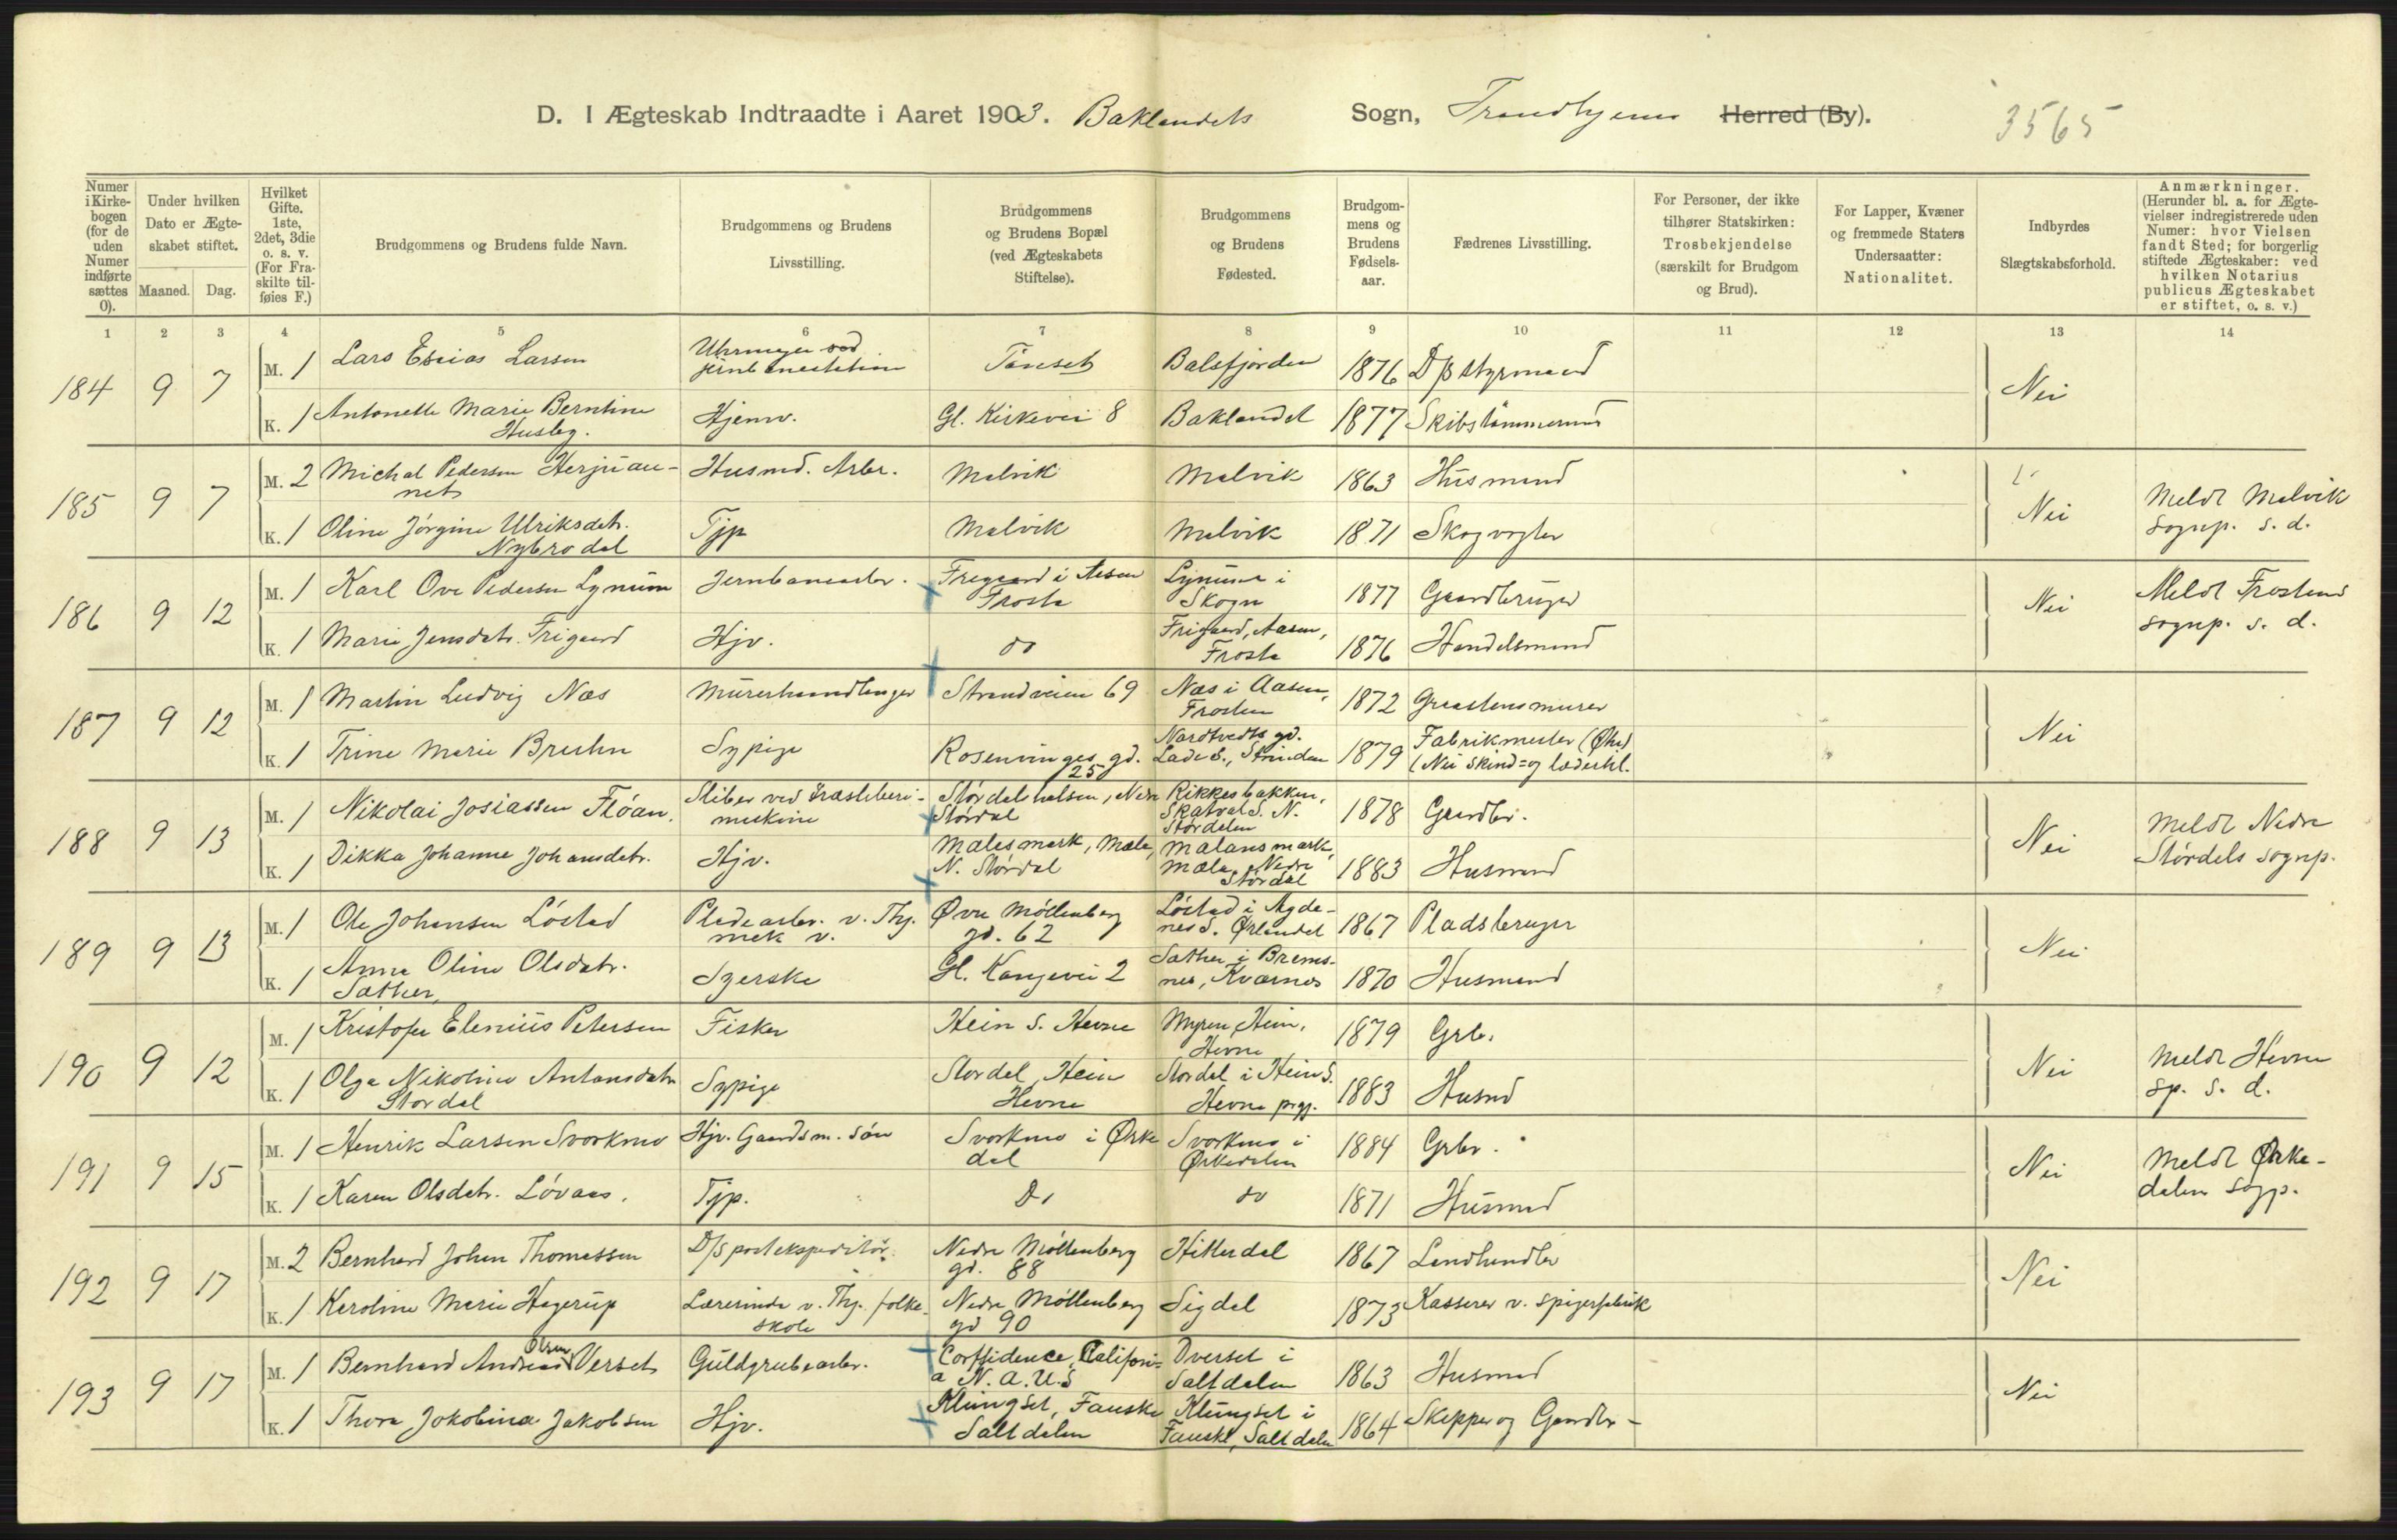 D. I Ægteskab Indtraadte i Aaret 1903. Baklandets Sogn, Trondhjems Herred (By). 3565
Numer i Kirkebogen (for de uden Numer indførte sættes 0).
Under hvilken Dato er Ægteskabet stiftet.
Maaned. Dag.
Hvilket Gifte. 1ste, 2det, 3die o. s. v. (For Fraskilte tilføies F.)
Brudgommens og Brudens fulde Navn.
Brudgommens og Brudens Livsstilling.
Brudgommens og Brudens Bopæl (ved Ægteskabets Stiftelse).
Brudgommens og Brudens Fødested.
Brudgommens og Brudens Fødselsaar.
Fædrenes Livsstilling.
For Personer, der ikke tilhører Statskirken: Trosbekjendelse (særskilt for Brudgom og Brud).
For Lapper, Kvæner og fremmede Staters Undersaatter: Nationalitet.
Indbyrdes Slægtskabsforhold.
Anmærkninger. (Herunder bl. a. for Ægtevielser indregistrerede uden Numer: hvor Vielsen fandt Sted; for borgerlig stiftede Ægteskaber: ved hvilken Notarius publicus Ægteskabet er stiftet, o. s. v.)
1 2 3 4 5 6 7 8 9 10 11 12 13 14
184 9 7 M. 1 Lars Esaias Larsen Tönset Balsfjorden 1876 D/S styrmand Nei
K. 1 Antonette Marie Berntine Husby. Hjemv. Gl. Kirkevei 8 Baklandet 1877 Skibstömmermd
185 9 7 M. 2 Michal Pedersen Herjuaunet Husmd. Arbr. Malvik Malvik 1863 Husmand Nei Meldt Malvik sognp. s. d.
K. 1 Oline Jörgine Ulriksdatr. Nybrodal Tjp Malvik Malvik 1871 Skogvogter
186 9 12 M. 1 Karl Ove Pedersen Lynum Jernbanearbr. Fregaard i Aasen Frosta Lynum i Skogn 1877 Gaardbruger Nei Meldt Frostens sognp. s. d.
K. 1 Marie Jensdatr. Frigaard Hjv. do Frigaard, Aasen, Frosta 1876 Handelsmand
187 9 12 M. 1 Martin Ludvig Næs Murerhandlanger Strandveien 69 Næs i Aasen, Frosten 1872 Graastensmurer Nei
K. 1 Trine Marie Bruhn Sypige Rosenvinges gd. 25 Nardtvedts gd. Lade S., Strinden 1879 Fabrikmester (Nei skind= og læderhl.
188 9 13 M. 1 Nikolai Josiassen Flöan. Sliber ved træsliberimaskine Stördalshalsen, Nedre Stördal Rikkesbakken, Skatval S. N. Stördalen 1878 Gaardbr. Nei Meldt Nedre Stördals sognp.
K. 1 Dikka Johanne Johansdatr. Hjv. Malesmark, Mæla, N. Stördal Malansmark, Mæla, Nedre Stördal 1883 Husmand
189 9 13 M. 1 Ole Johansen Löstad Pladearbr. v. Thj. mek v. Øvre Möllenberg gd. 62 Löstad i Agdenes S. Ørlandet 1867 Pladsbruger Nei
K. 1 Anna Oline Olsdatr. Sæther, Syerske Gl. Kongevei 2 Sæther i Bremsnes, Kværnes 1870 Husmand
190 9 12 M. 1 Kristofer Elenius Petersen Fisker Hein S. Hevne Myren, Hein, Hevne 1879 Grb. Nei Meldt Hevne sp. s. d.
K. 1 Olga Nikoline Antonsdatr Stordal Sypige Stordal, Hein Hevne Stordal i Hein S. Hevne prgj. 1883 Husmd
191 9 15 M. 1 Henrik Larsen Svorkmo Hjv. Gaardsm. sön Svorkmo i Ørkedal Svorkmo i Ørkedalen 1884 Grbr. Nei Meldt Ørkedalen sogp.
K. 1 Karen Olsdatr. Lövaas. Tjp. Do do 1871 Husmand
192 9 17 M. 2 Bernhard Johan Thomassen D/S postekspeditör. Nedre Möllenberg gd. 88 Hitterdal 1867 Landhandler Nei
K. 1 Karoline Marie Hagerup Lærerinde v. Thj. folkeskole Nedre Möllenberg gd 90 Sigdal 1873 Kasserer v. spigerfabrik
193 9 17 M. 1 Bernhard Andreas Olsen Verset Guldgrubearbr. Corffidence, California N. A. U. S Dverset i Saltdalen 1863 Husmand Nei
K. 1 Thora Jokobina Jakobsen Hjv. Klungset, Fauske Saltdalen Klungset i Fauske, Saltdalen 1864 Skipper og Gaardbr